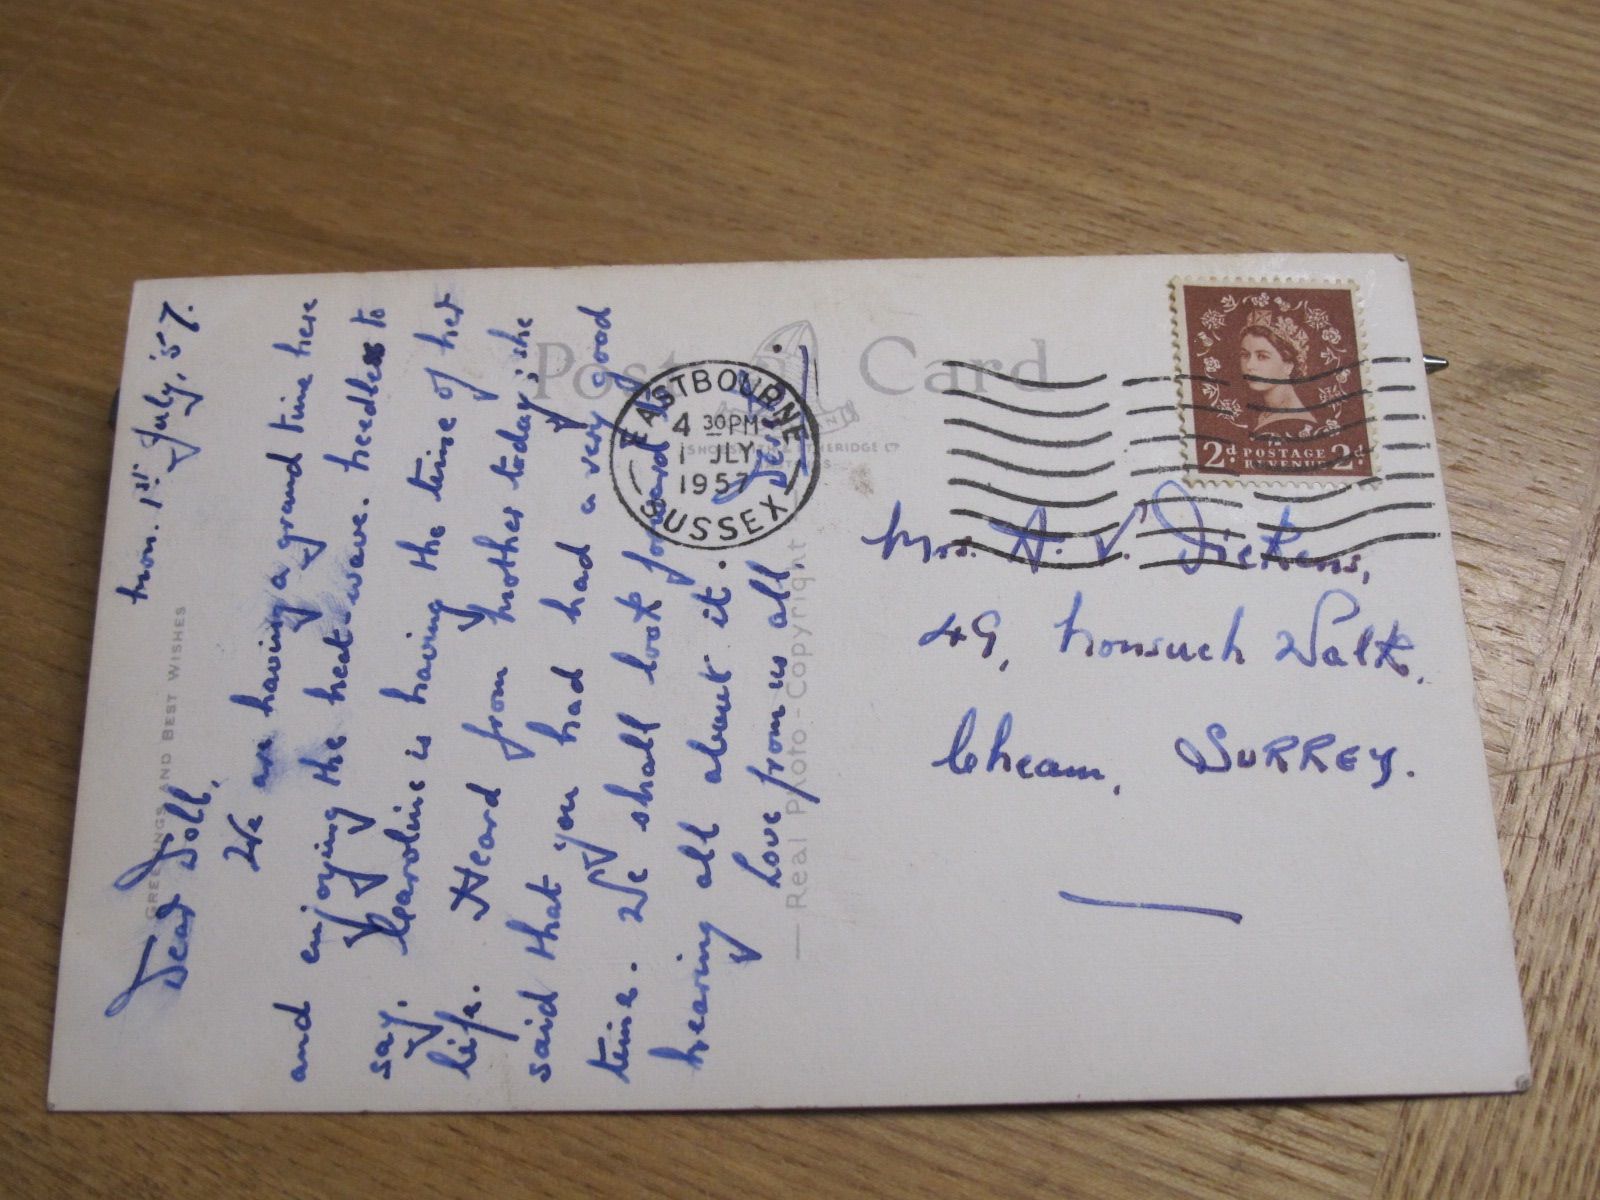 Mon. 1st July, '57.
Dear Doll,
We are having a grand time here
and enjoying the heat wave. Needless to
say. Caroline is having the time of her
life. Heard from Mother today; she
said that you had had a very good
time. We shall look forward to
hearing all about it.
Love from us all
GREETINGS AND BEST WISHES
Post Card
Real Photo-Copyright
EASTBOURNE
4 30PM
1 JLY
1957
SUSSEX
2d POSTAGE 2d
REVENUE
Mrs. A. V. Dickens,
49, Nonsuch Walk,
Cheam, SURREY.